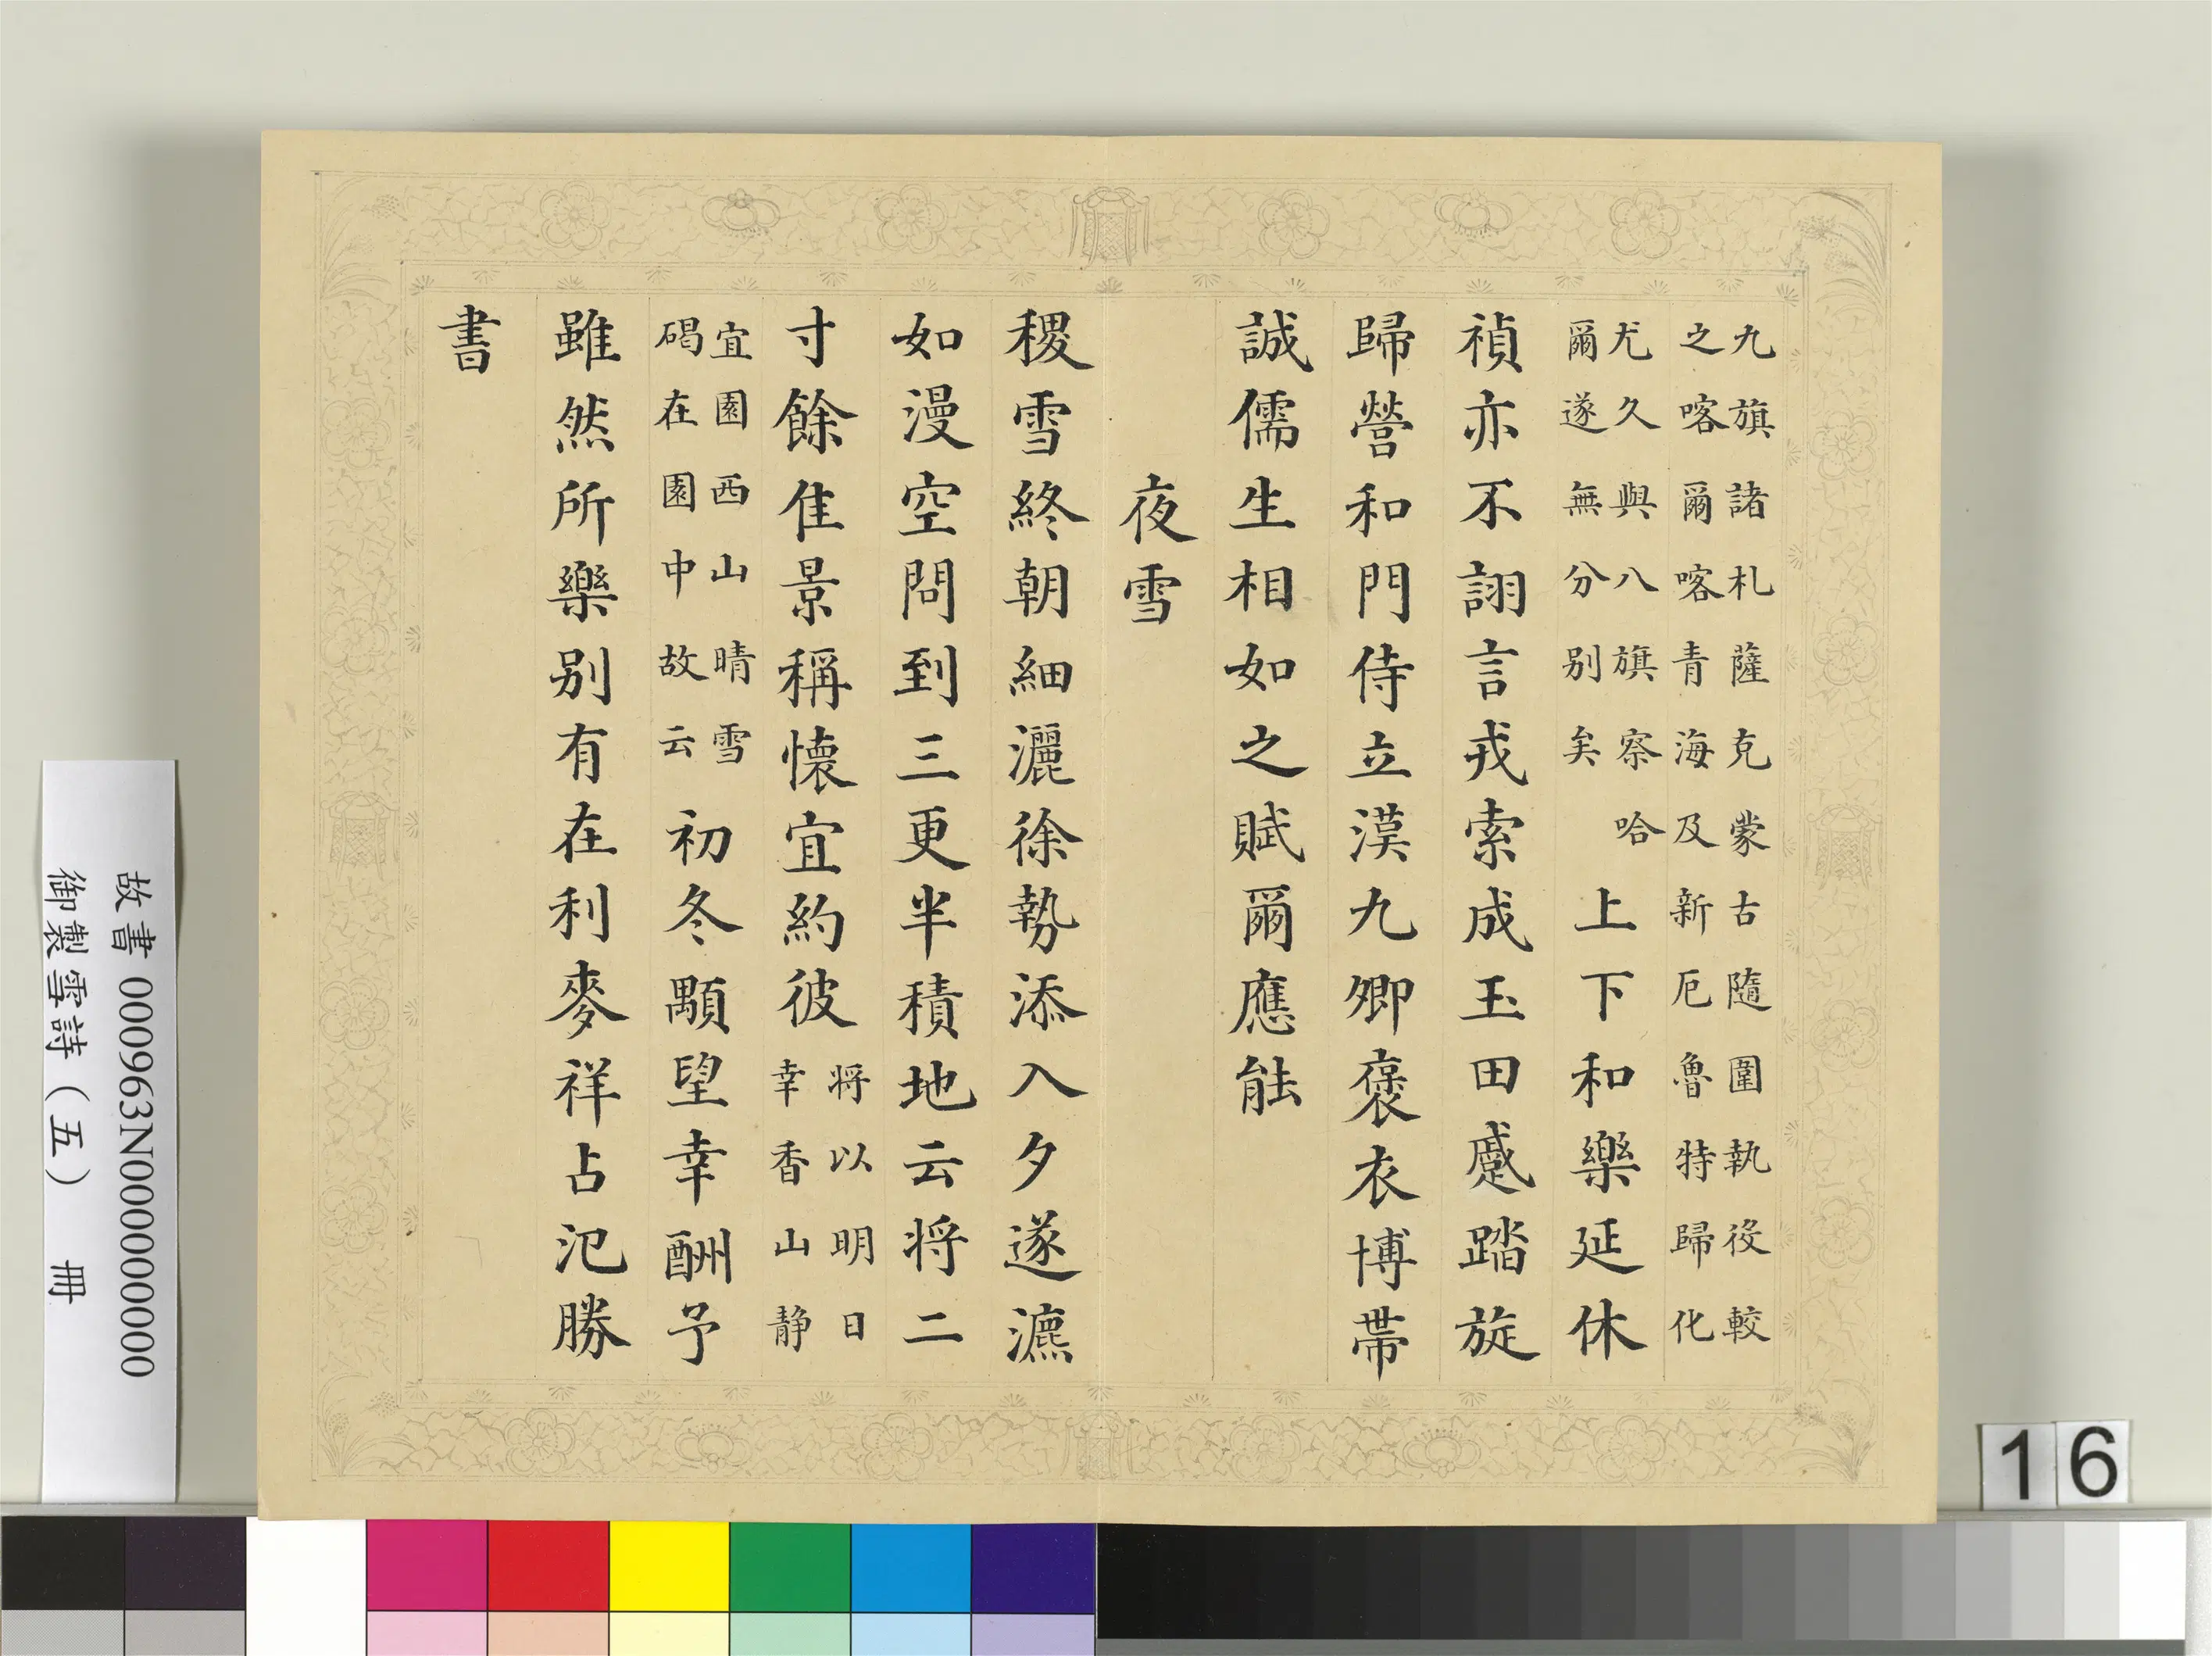 九旗諸札薩克蒙古隨圍執役較
之喀爾喀青海及新厄魯特歸化
尤久與八旗察哈
爾遂無分别矣
上下和樂延休
禎亦不詡言戎索成玉田蹙踏旋
歸營和門侍立漢九卿褒衣博帶
誠儒生相如之賦爾應能
夜雪
稷雪終朝細灑徐勢添入夕遂瀌
如漫空問到三更半積地云將二
寸餘佳景稱懷宜約彼
將以明日
幸香山静
宜園西山晴雪
碣在園中故云
初冬顒望幸酬予
雖然所樂别有在利麥祥占氾勝
書
故書 000963N000000000
御製雪詩(五) 冊
16